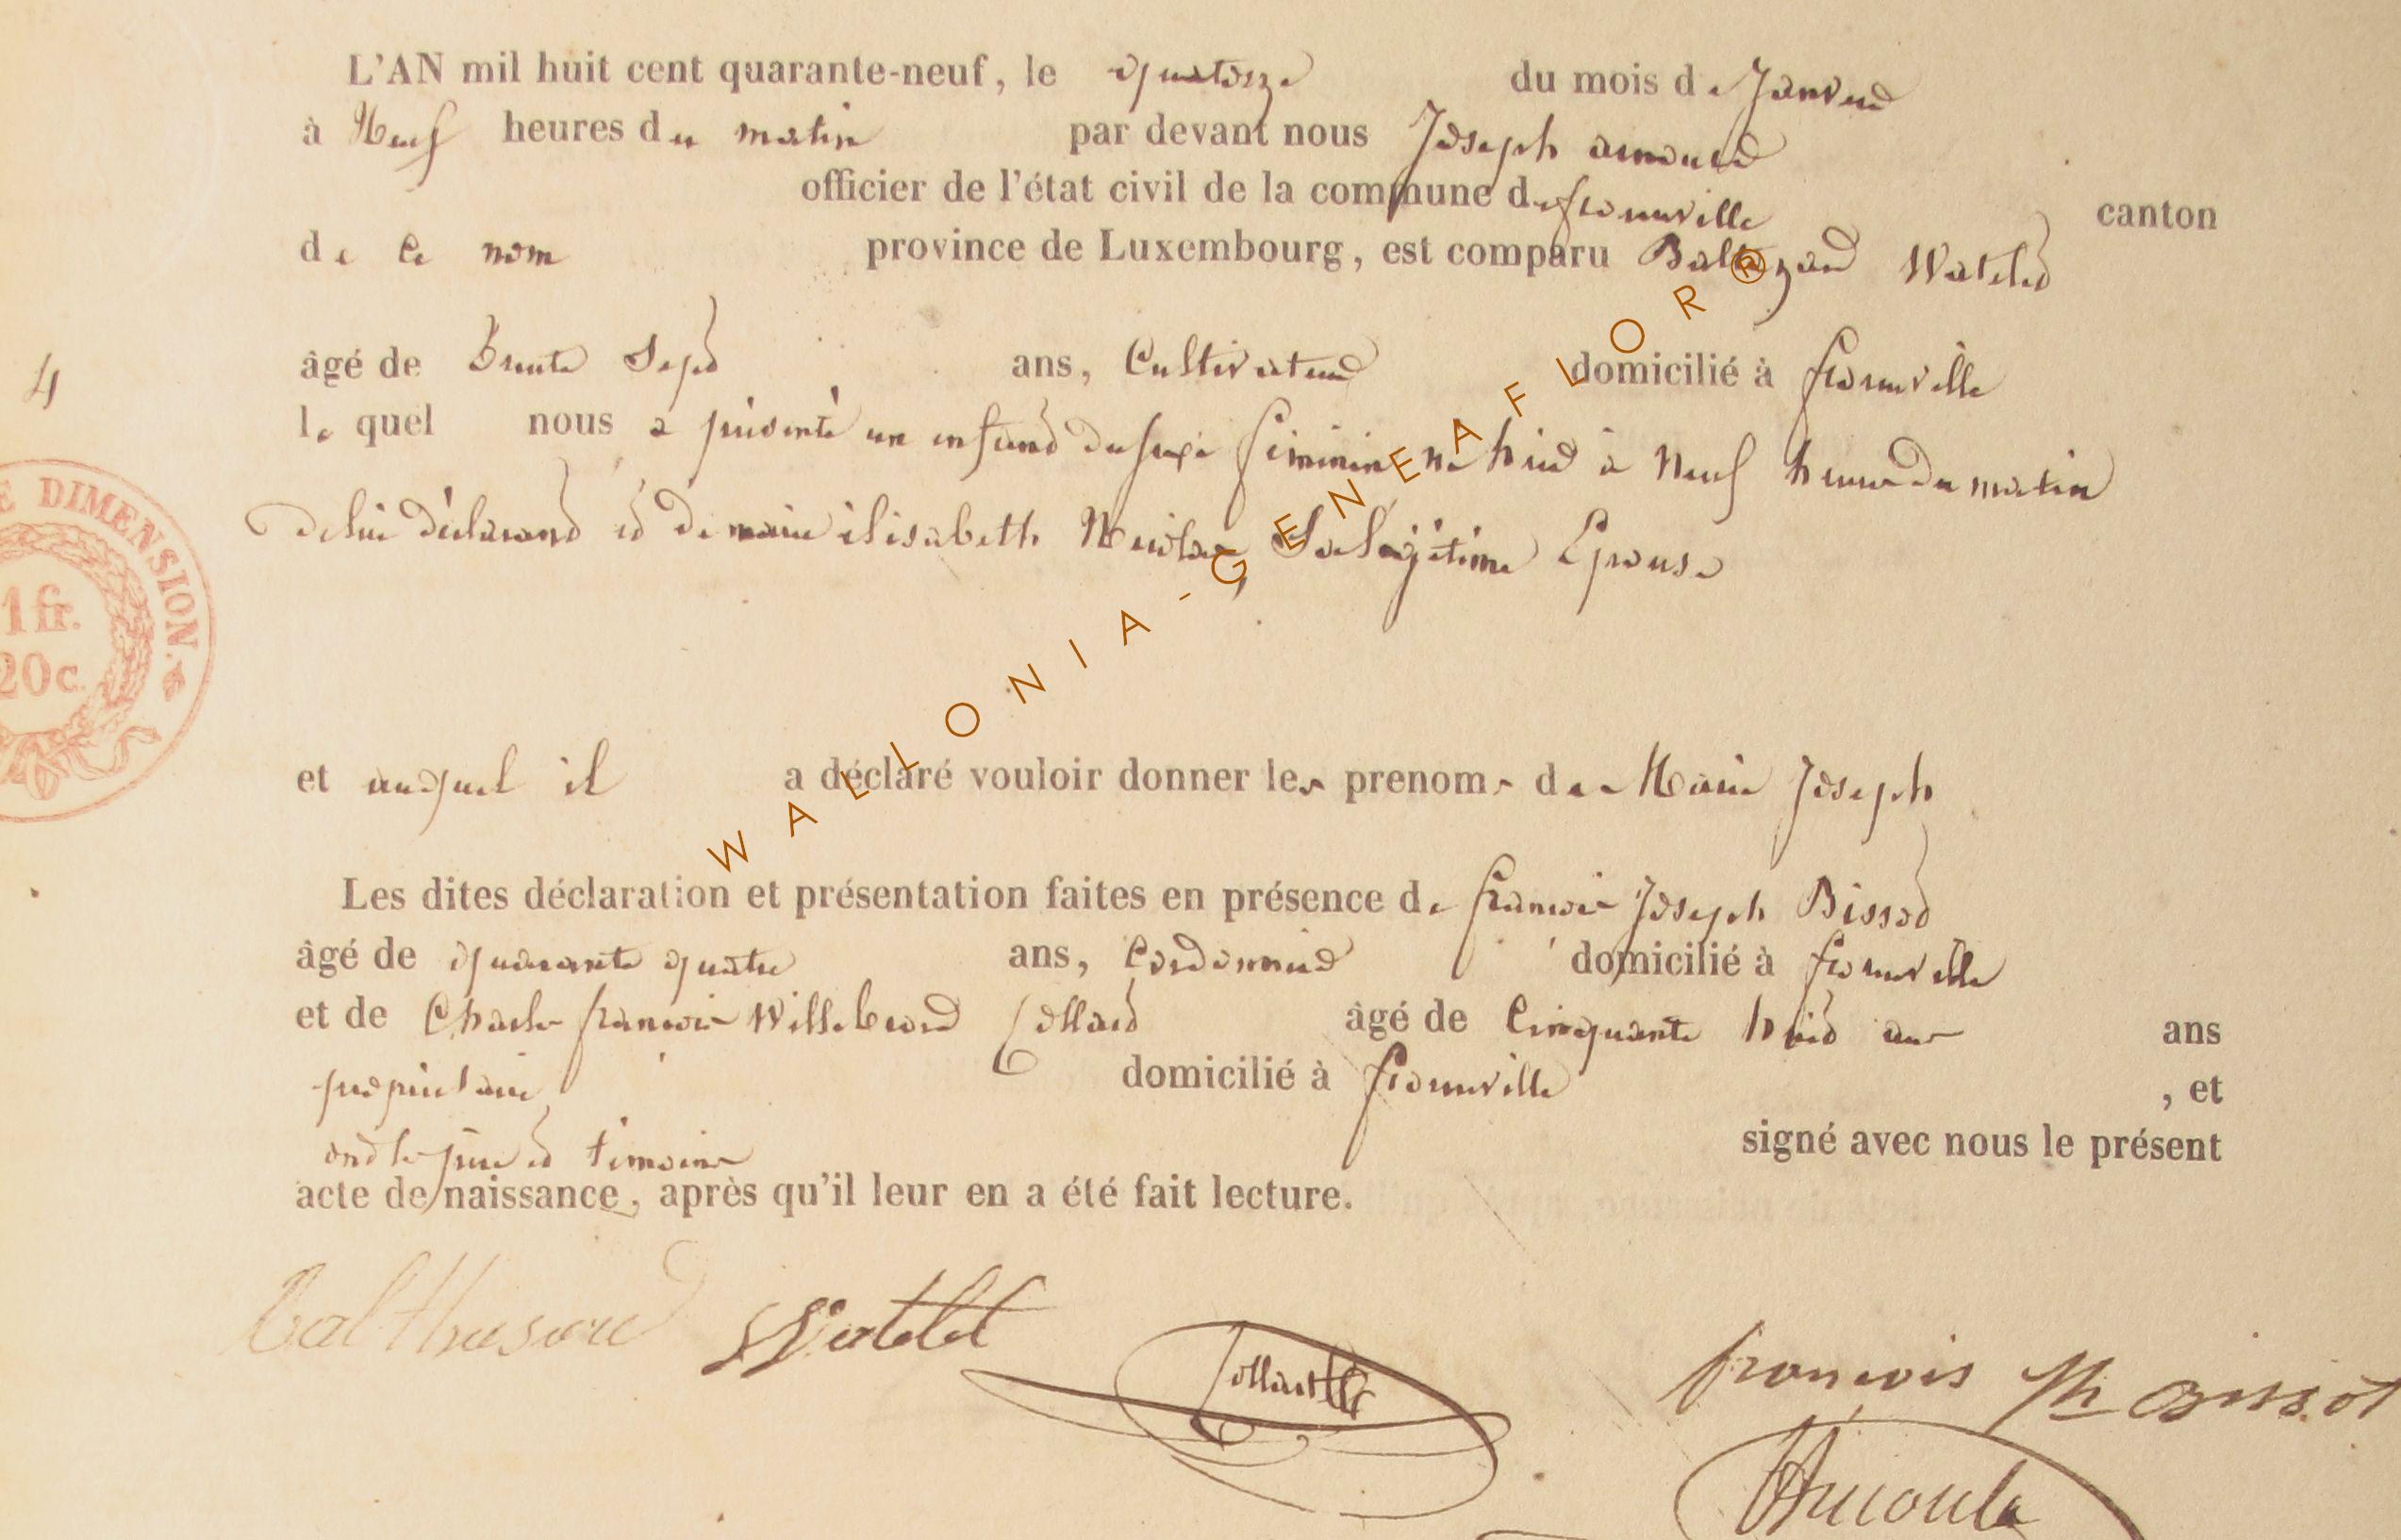 L'AN mil huit cent quarante-neuf, le quatorze du mois de Janvier
à Neuf heures du matin par devant nous Joseph arnould
officier de l'état civil de la commune de florenville canton
de Ce nom province de Luxembourg, est comparu Baltazard Watelet
âgé de Trente Sept ans, Cultivateur domicilié à florenville
4
le quel nous a présenté un enfant du sexe féminin né hier à Neuf heures du matin
E DIMENSION.
1 fr.
20c.
de lui déclarant et de marie élisabeth Nicolas, Sa Légitime Epouse
et auquel il a déclaré vouloir donner les prenoms de Marie Joseph
Les dites déclaration et présentation faites en présence de françois Joseph Bissot
âgé de quarante quatre ans, Cordonnier domicilié à florenville
et de Charles françois Willebrord Collard âgé de Cinquante huit ans ans
propriétaire domicilié à florenville , et
ont les père et témoins signé avec nous le présent
acte de naissance, après qu'il leur en a été fait lecture.
balthasard Watelet
Collart
françois Jph Bissot
WALLONIA-GENEAFLOR®